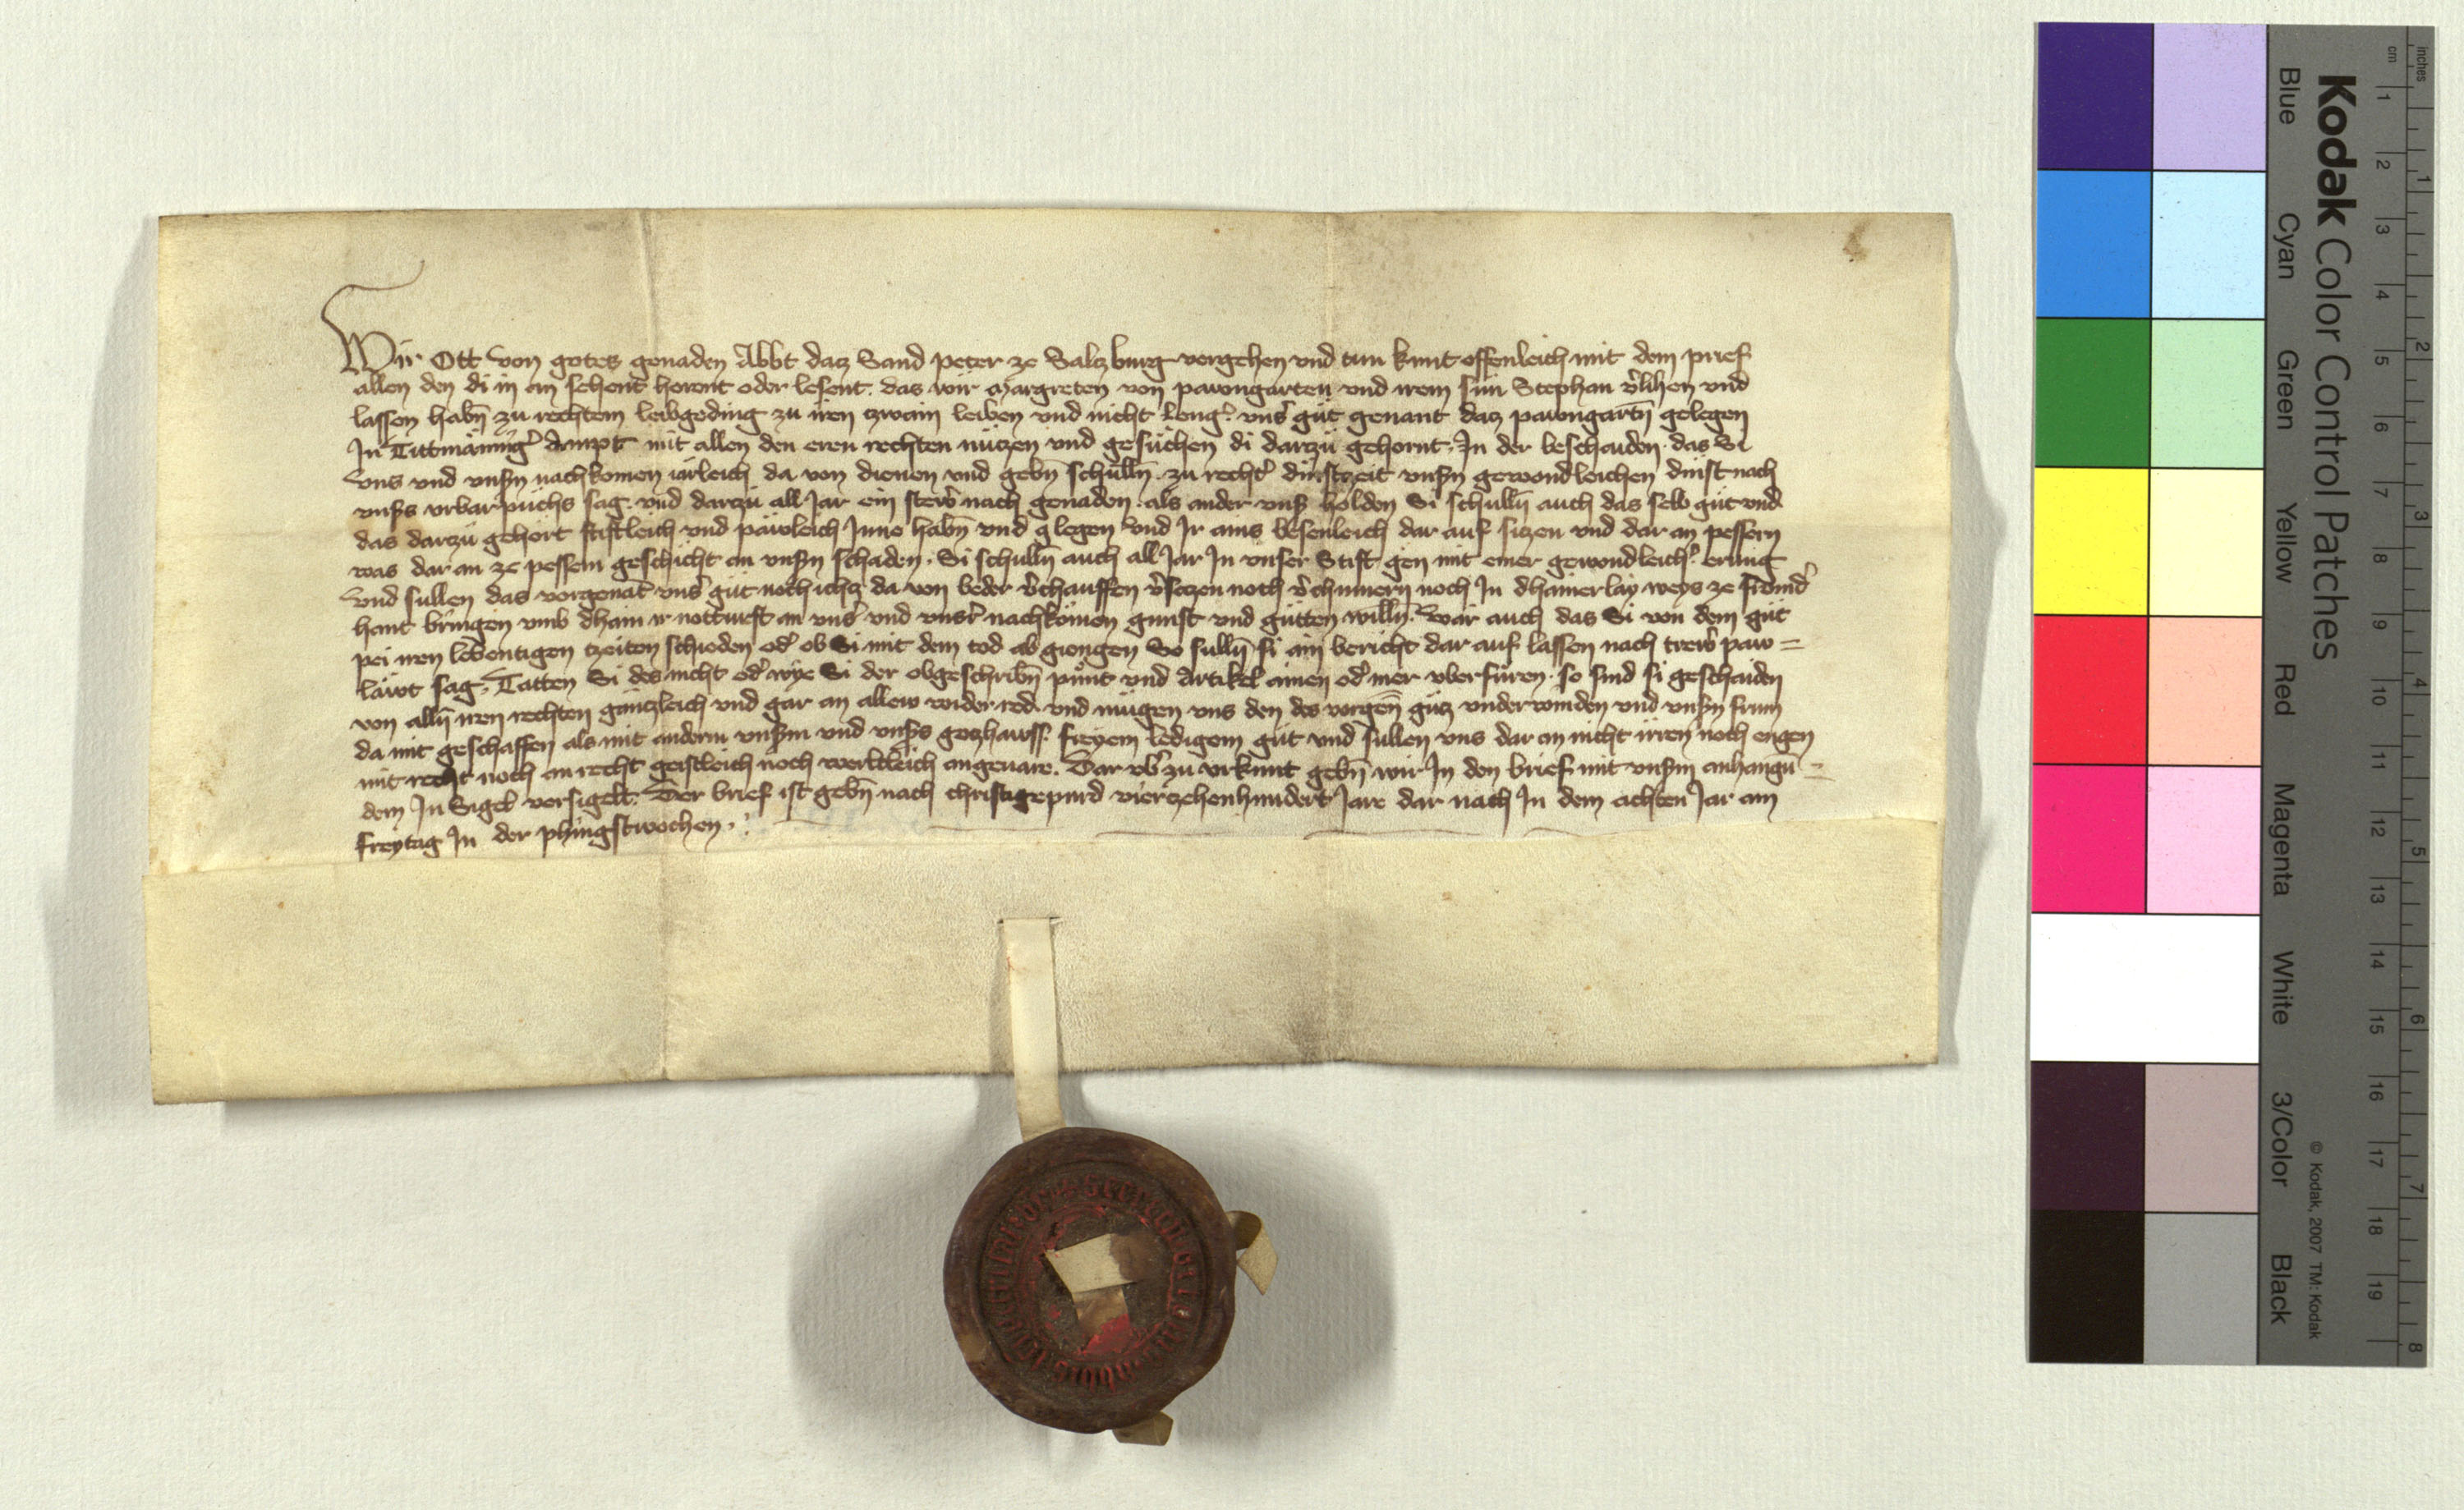 Wir Ott von gotes genaden Abbt dacz Sand Peter ze Salczburg vergehen vnd tun kunt offenleich mit dem prief
allen den di in an sehent horent oder lesent. das wir Margreten von pawngarten vnd irem sün Stephan v̓lihen vnd
lassen habn̄ zu rechtem leibgeding zu iren zwain leiben vnd nicht leng̓. vns̓ güt genant daz pawngartn̄ gelegen
In Tittmäning̓ Ampt mit allen den eren rechten nüczen vnd gesüchen di darzü gehornt. In der beschaiden. das Si
vns vnd vnsn̓ nachkomen iärleich da von dienen vnd gebn̄ schülln̄. zu recht̓ dinstzeit vnsn̓ gewondleichen dinst nach
vnss̓ vrbarpüchs sag. vnd darzü all Jar ein stew̓ nach genaden. als ander vns̓ holden Si schulln̄ auch das selb güt vnd
das darzü gehört stiftleich vnd päwleich Inne habn̄ vnd glegen vnd Ir ains besenleich dar auf siczen vnd dar an pessern
was dar an ze pessern geschicht an vnsn̓ schaden. Si schulln̄ auch all Jar In vnser Stift gen mit einer gewondleich̓ erung
vnd sullen das vorgenāt vns̓ güt noch ichcz da von weder v̓chauffen v̓seczen noch v̓chumern noch In dhainerlay weys ze frömd̓
hant bringen vmb dhain ir notturft an vns̓ vnd vnsr̓ nachkömen gunst vnd gütten willn̄. wär auch das Si von dem güt
pei iren lebentigen czeiten schieden od̓ ob Si mit dem tod ab giengen So sulln̄ si ain bericht dar auf lassen nach trew̓ paw=
läwt sag. Tätten Si des nicht od̓ wye Si der obgeschribn̄ pünt vnd Artikel ainen od̓ mer vberfüren. so sind si geschaiden
von alln̄ iren rechten gänczleich vnd gar an allew widerred vnd mügen vns den des vorgen̄ gücz vnderwinden vnd vnsn̓ frum
da mit geschaffen als mit anderm vnsm̓ vnd vnss̓ goczhawss freyem ledigem güt vnd sullen vns dar an nicht irren noch engen
mit recht noch an recht geistleich noch werltleich angeuare. Dar vb̓ zu vrkunt gebn̄ wir In den brief mit vnsm̓ anhangn̄=
dem In Sigel versigelt. Der brief ist gebn̄ nach christigepurd vierczehenhundert Jare dar nach In dem achten Jar am
freytag In der phingstwochen.
Kodak Color Control Patches
Blue Cyan Green Yellow Red Magenta White 3/Color Black
© Kodak, 2007 TM: Kodak
cm 1 2 3 4 5 6 7 8 9 10 11 12 13 14 15 16 17 18 19
inches 1 2 3 4 5 6 7 8